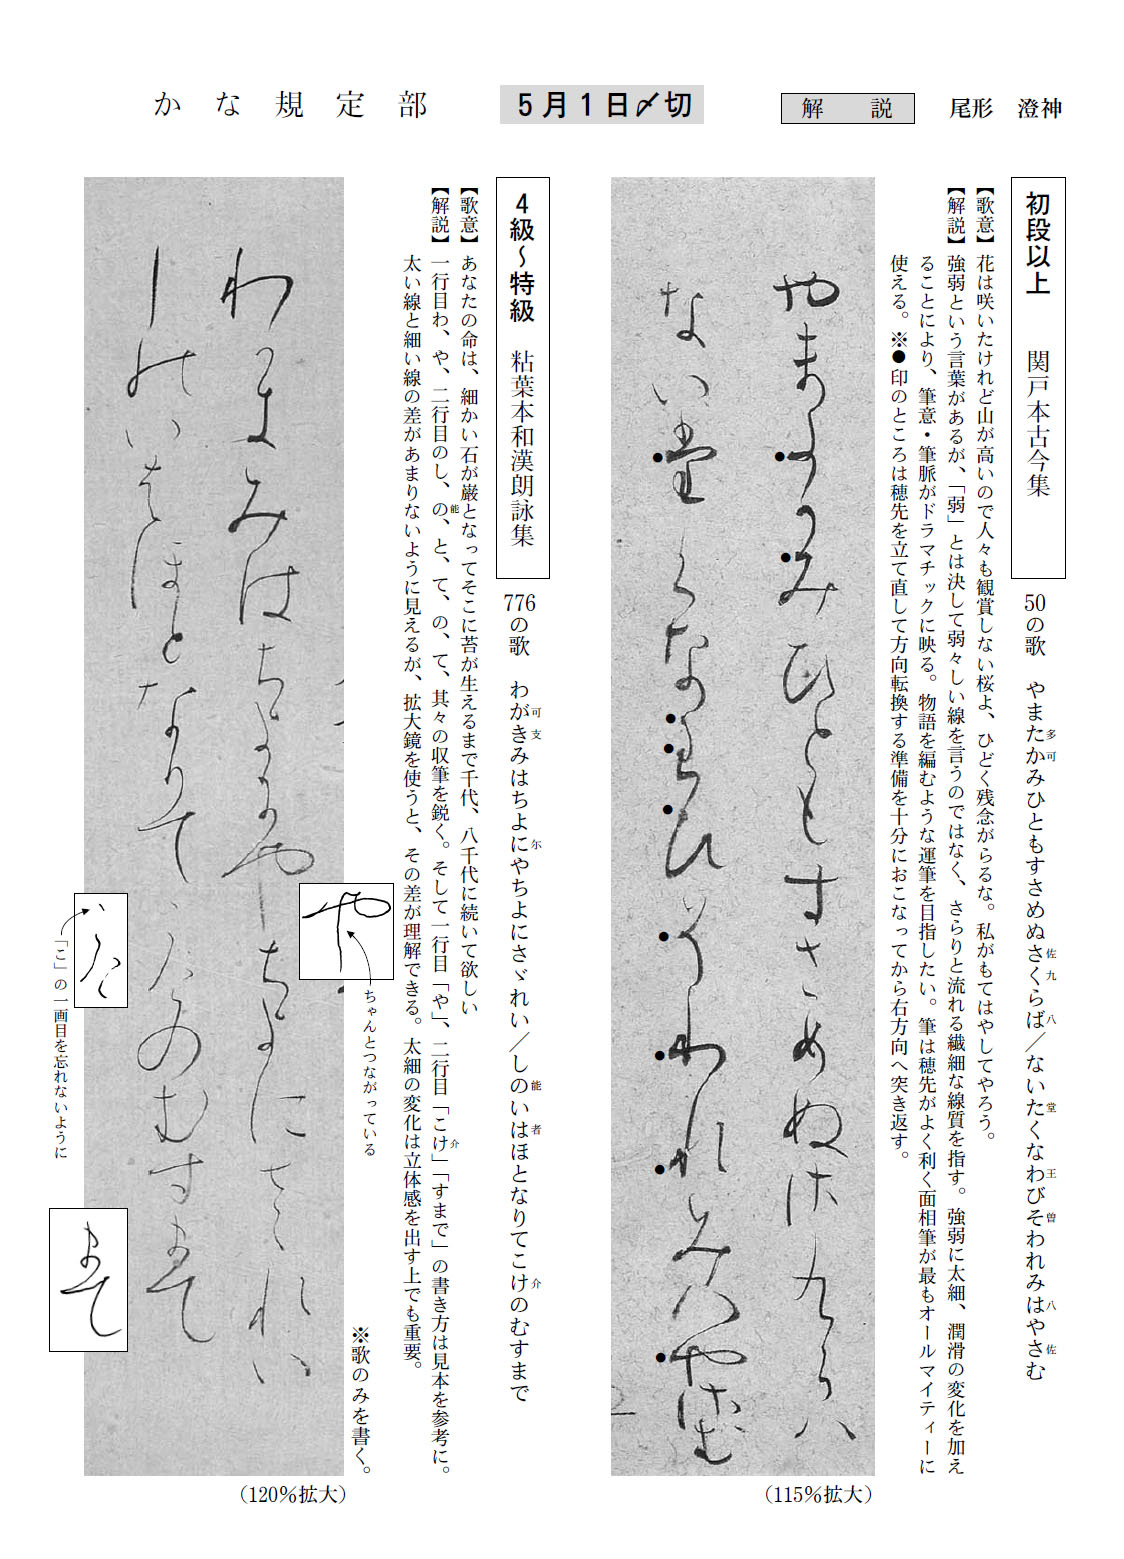 かな規定部
5月1日〆切
解 説
尾形 澄神
初段以上 関戸本古今集
50の歌 やまたかみひともすさめぬさくらば／ないたくなわびそわれみはやさむ
多可
佐九
八
堂
王
曽
八
佐
【歌意】花は咲いたけれど山が高いので人々も観賞しない桜よ、ひどく残念がらるな。私がもてはやしてやろう。
【解説】強弱という言葉があるが、「弱」とは決して弱々しい線を言うのではなく、さらりと流れる繊細な線質を指す。強弱に太細、潤滑の変化を加え
ることにより、筆意・筆脈がドラマチックに映る。物語を編むような運筆を目指したい。筆は穂先がよく利く面相筆が最もオールマイティーに
使える。※●印のところは穂先を立て直して方向転換する準備を十分におこなってから右方向へ突き返す。
やまたかみひともすさめぬさくらは
ないたくなわひそわれみはやさむ
（115％拡大）
4級～特級 粘葉本和漢朗詠集
776の歌 わがきみはちよにやちよにさゞれい／しのいはほとなりてこけのむすまで
可
支
尓
能
者
介
【歌意】あなたの命は、細かい石が巌となってそこに苔が生えるまで千代、八千代に続いて欲しい
【解説】一行目わ、や、二行目のし、の、と、て、の、て、其々の収筆を鋭く。そして一行目「や」、二行目「こけ」「すまで」の書き方は見本を参考に。
能
介
太い線と細い線の差があまりないように見えるが、拡大鏡を使うと、その差が理解できる。太細の変化は立体感を出す上でも重要。
※歌のみを書く。
わかきみはちよにやちよにさゝれい
しのいはほとなりてこけのむすまて
や
ちゃんとつながっている
こけ
「こ」の一画目を忘れないように
まて
（120％拡大）